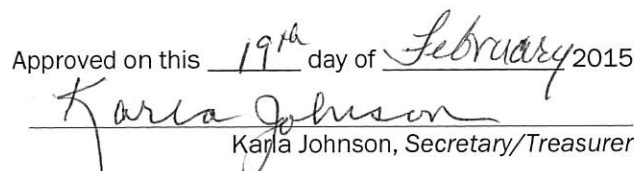 Approved on this 19th day of February 2015
Karla Johnson
Karla Johnson, Secretary/Treasurer